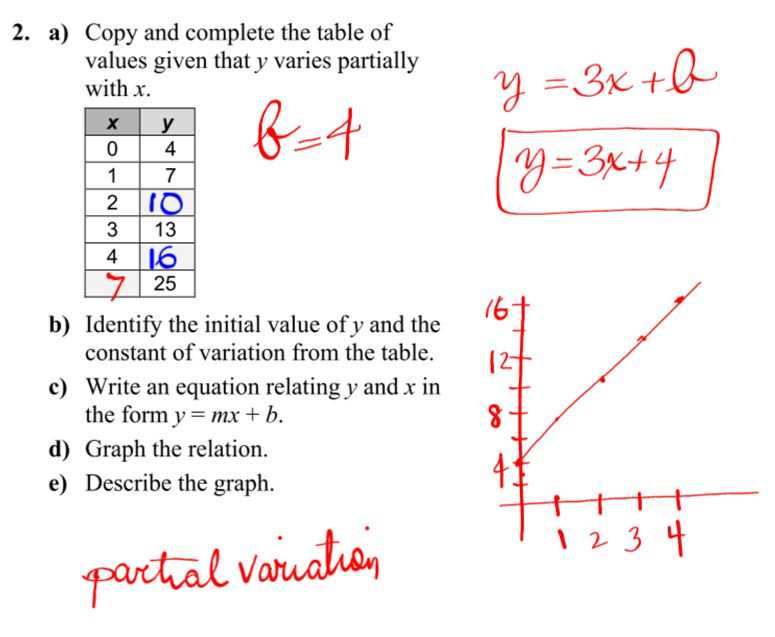 2. a) Copy and complete the table of
values given that y varies partially
with x.
x y
0 4
1 7
2 10
3 13
4 16
7 25
b = 4
y = 3x + b
y = 3x + 4
b) Identify the initial value of y and the
constant of variation from the table.
c) Write an equation relating y and x in
the form y = mx + b.
d) Graph the relation.
e) Describe the graph.
16
12
8
4
1 2 3 4
partial variation